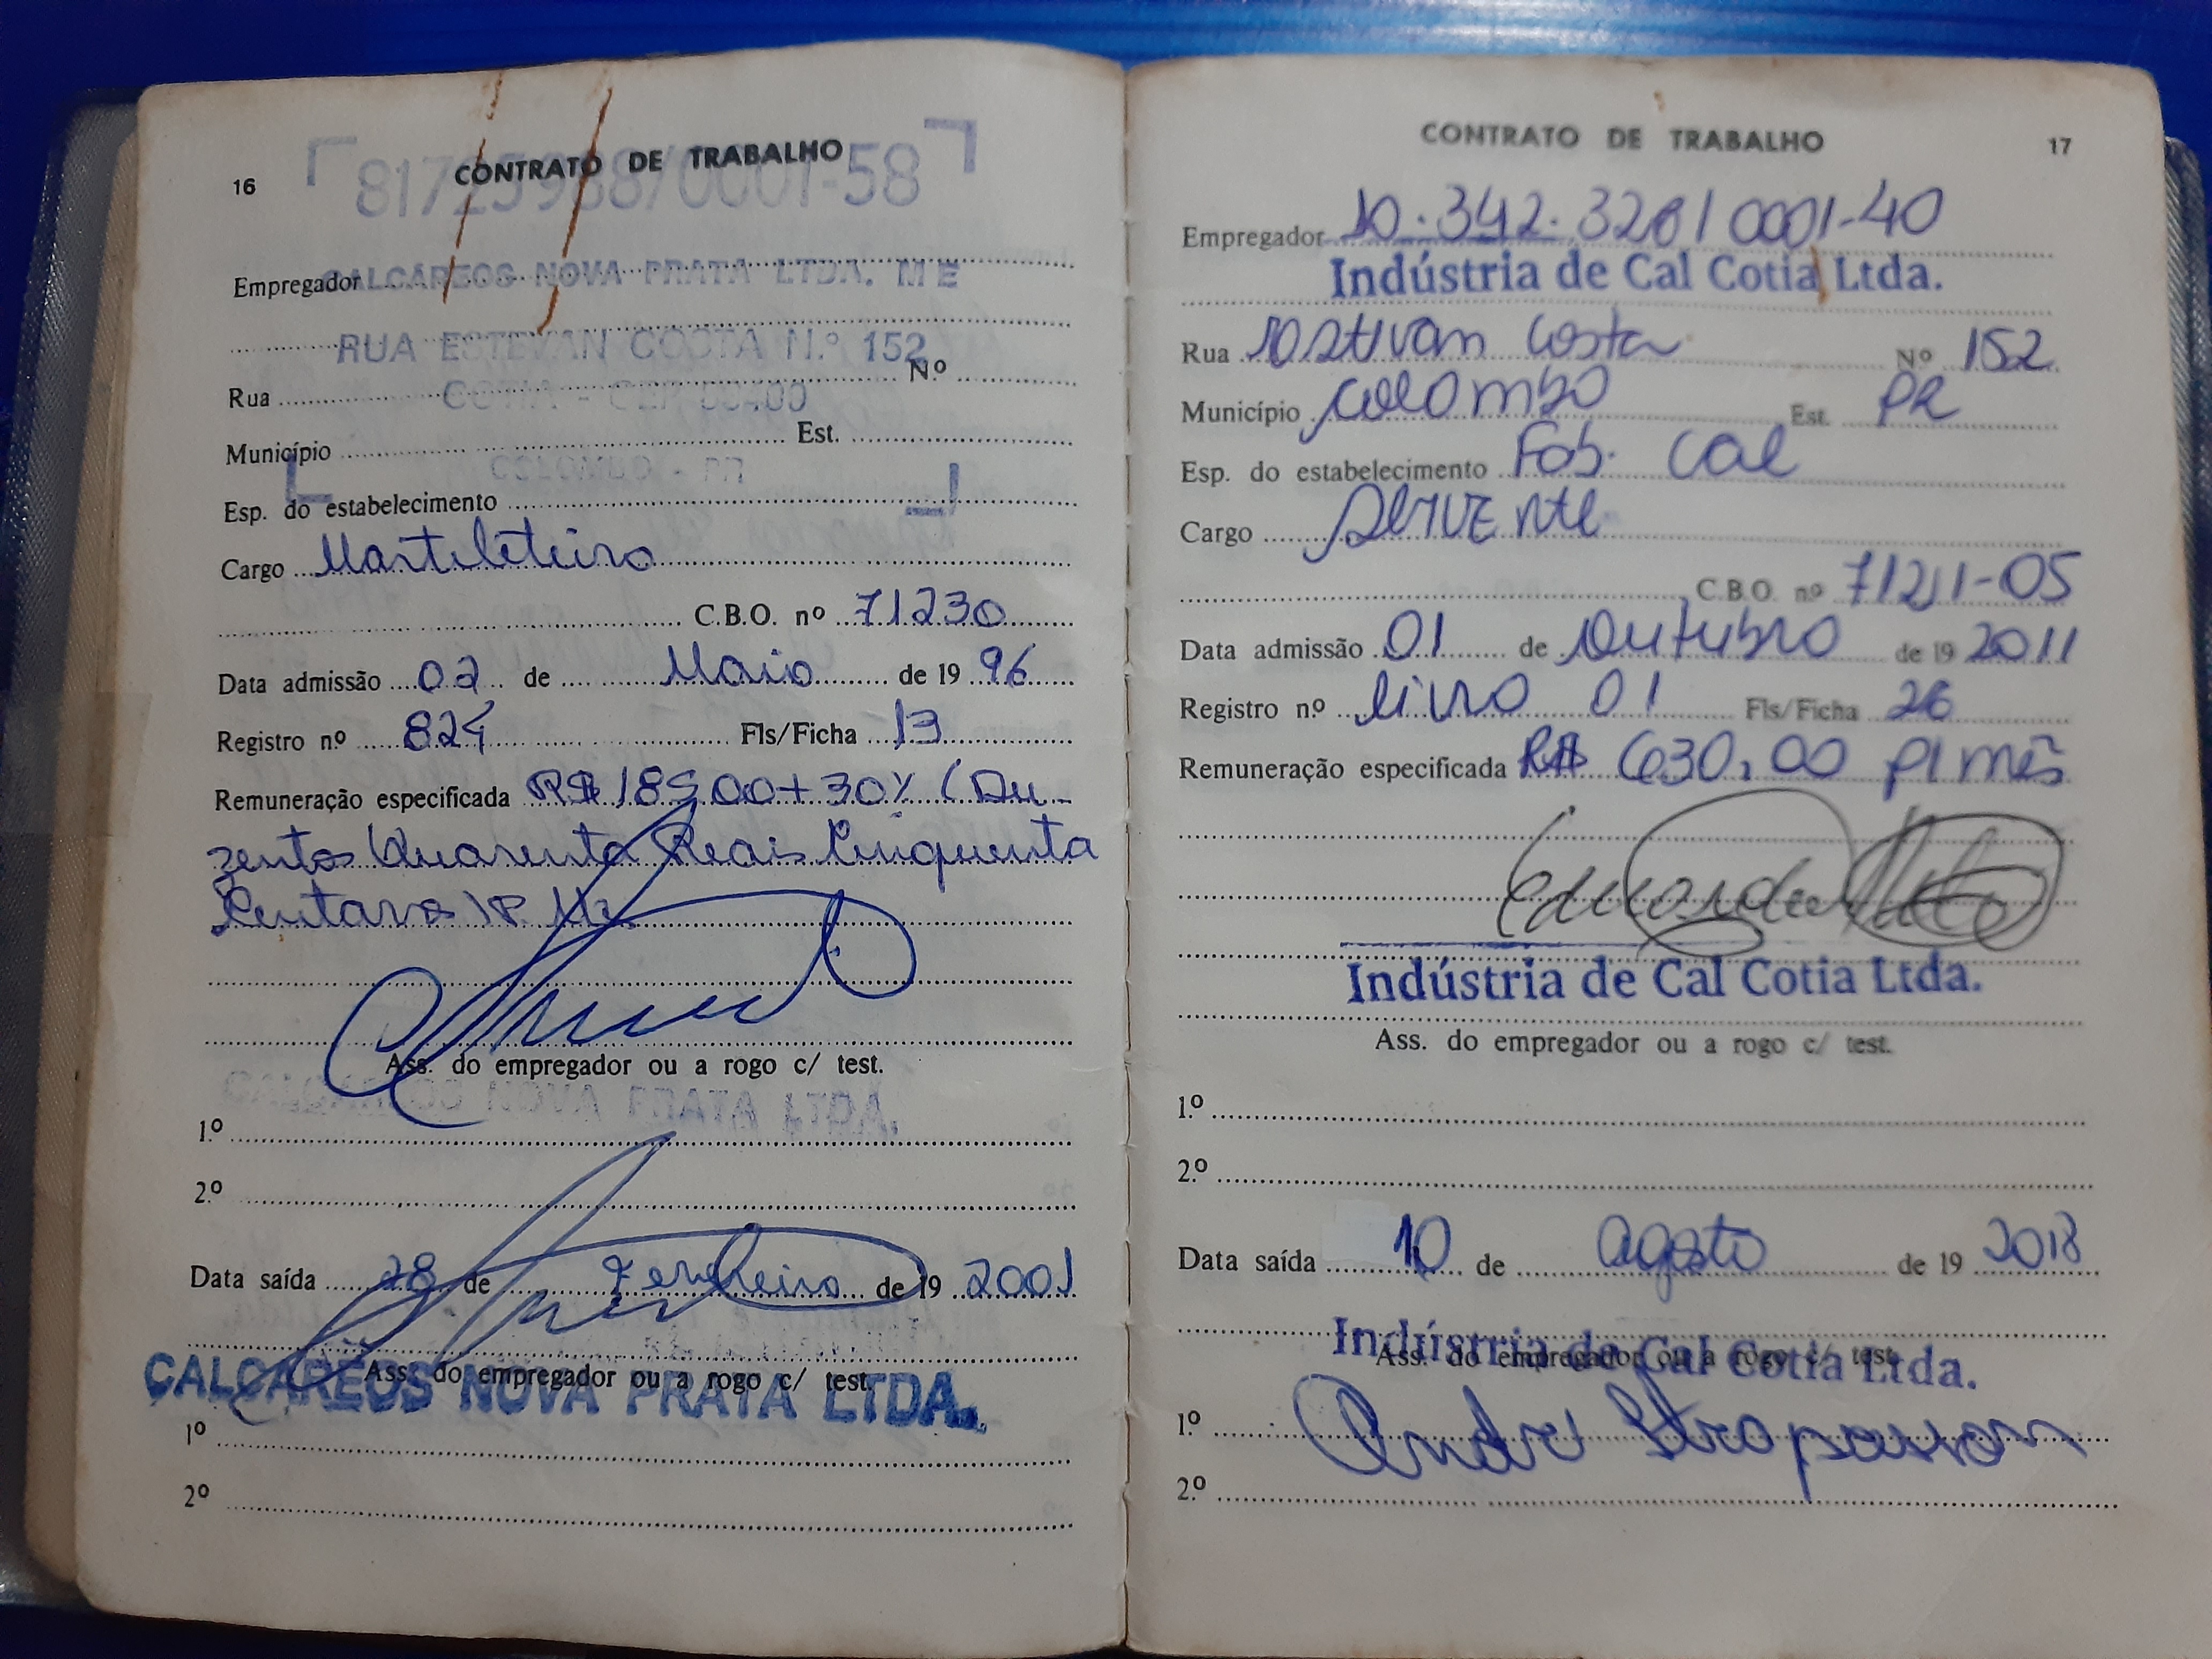 16
CONTRATO DE TRABALHO
81725988/0001-58
Empregador CALCAREOS NOVA PRATA LTDA. ME
RUA ESTEVAN COSTA N.º 152
Rua Nº
COTIA - CEP 83400
Município Est.
COLOMBO - PR
Esp. do estabelecimento
Cargo Marteleteiro
C.B.O. nº 71230
Data admissão 02 de Maio de 19 96
Registro nº 824 Fls/Ficha 13
Remuneração especificada R$ 185,00 + 30% (Du-
zentos Quarenta Reais Cinquenta
Centavos) P.
Ass. do empregador ou a rogo c/ test.
CALCAREOS NOVA PRATA LTDA.
1º
2º
Data saída 28 de Fevereiro de 19 2001
Ass. do empregador ou a rogo c/ test.
CALCAREOS NOVA PRATA LTDA.
1º
2º
CONTRATO DE TRABALHO
17
Empregador 10.342.328/0001-40
Indústria de Cal Cotia Ltda.
Rua Costa Nº 152
Município Colombo Est. PR
Esp. do estabelecimento Fab. Cal
Cargo Servente
C.B.O. nº 7121-05
Data admissão 01 de Outubro de 19 2011
Registro nº livro 01 Fls/Ficha 26
Remuneração especificada R$ 630,00 p/ mês
Indústria de Cal Cotia Ltda.
Ass. do empregador ou a rogo c/ test.
1º
2º
Data saída 10 de agosto de 19 2018
Indústria de Cal Cotia Ltda.
Ass. do empregador ou a rogo c/ test.
1º André Strapasson
2º